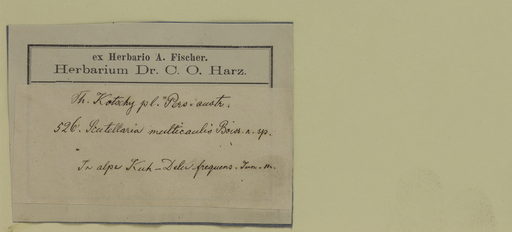 ex Herbario A. Fischer.
Herbarium Dr. C. O. Harz.
Th. Kotschy pl. Pers. austr.
526. Scutellaria multicaulis Boiss. n. sp.
In alpe Kuh-Delu frequens. Jun. m.